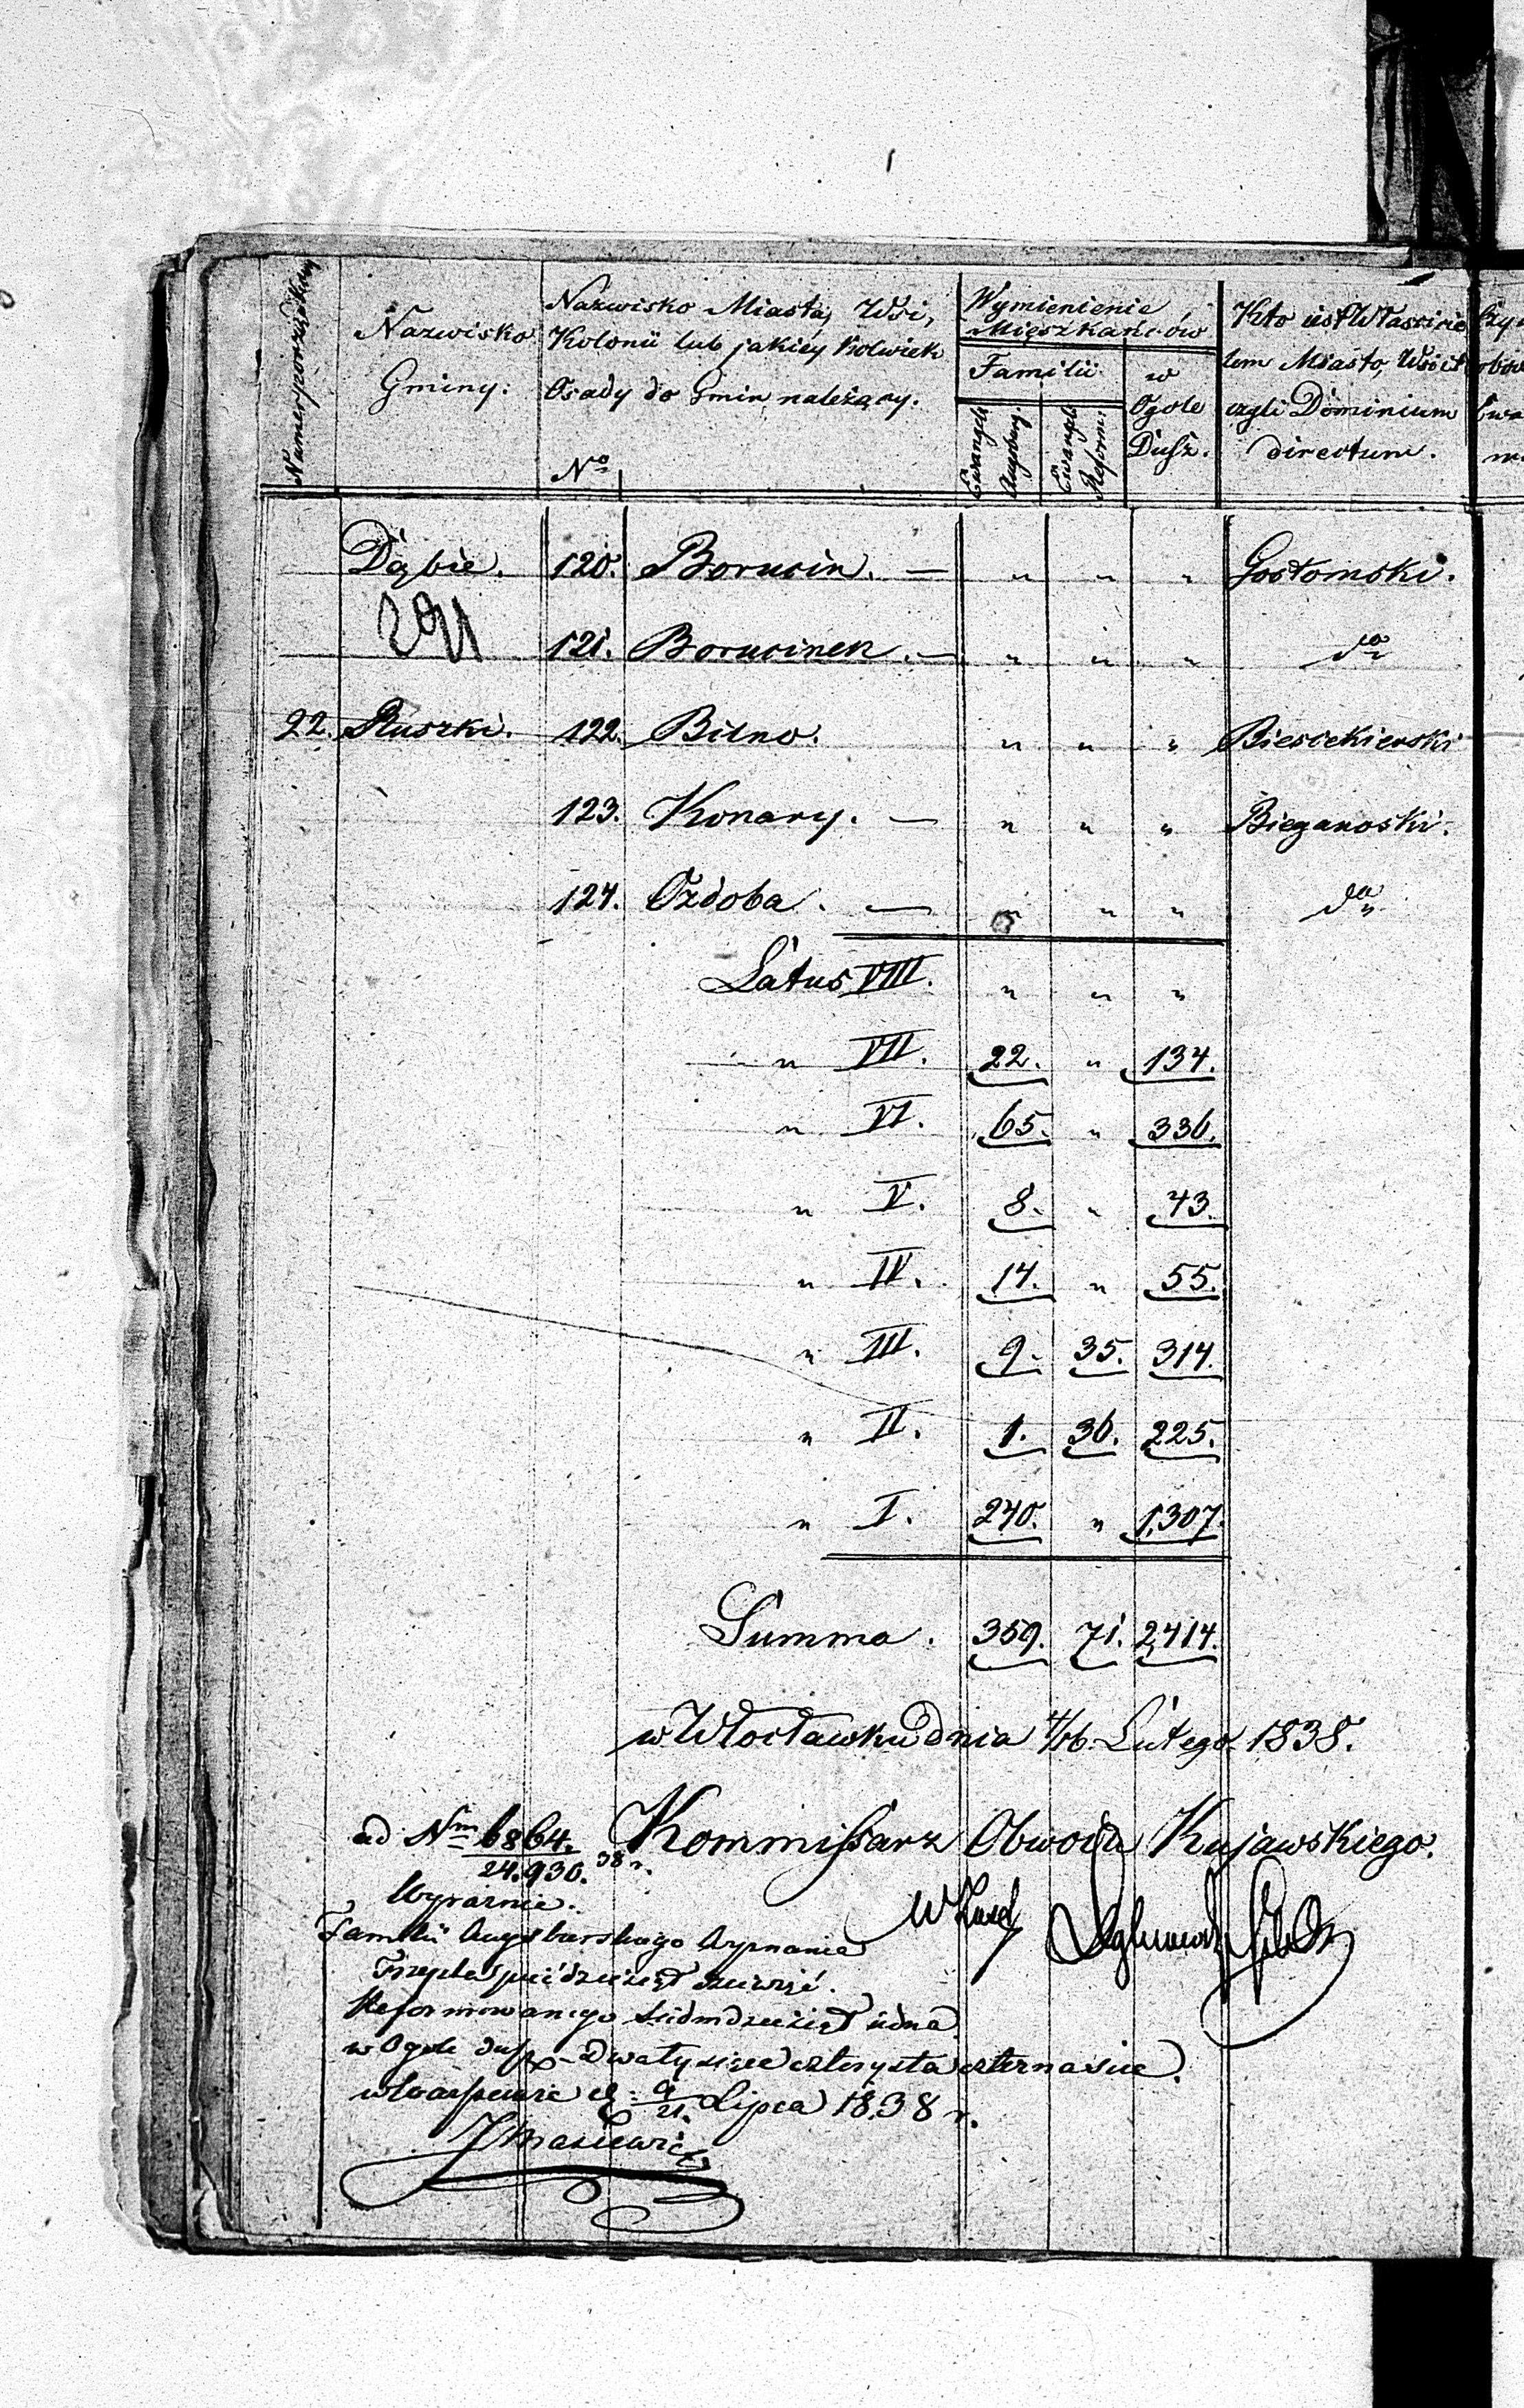 Numer porządkowy
Nazwisko
Gminy:
Nazwisko Miasta, Wsi,
Kolonii lub jakiey kolwiek
Osady do Gmin należący.
No
Wymienienie
Mieszkańców
Familii
Ewangel: Augsburg.
Ewangel: Reform:
w
Ogole
Dusz.
Kto iest Właścicie
lem Miasta, Wsi it
czyli Dominium
directum.
Dąbie. 120. Borucin. — " " " Gostomski.
291
121. Borucinek. — " " " do
22. Ruszki. 122. Bilno. " " " Biesiekierski
123. Konary. — " " " Bieganoski.
124. Ozdoba. — " " " do
Latus VIII. " " "
" VII. 22. " 134.
" VI. 65. " 336.
" V. 8. " 43.
" IV. 14. " 55.
" III. 9. 35. 314.
" II. 1. 36. 225.
" I. 240. " 1,307.
Summa. 359. 71. 2,414.
w Włocławku dnia 4/16 Lutego 1838.
Kommissarz Obwodu Kujawskiego.
ad Nrm 6864.
24.930. 38 r.
Wyraźnie.
Familii Augsburskiego Wyznania
Trzysta pięćdziesiąt dziewięć.
Reformowanego siedmdziesiąt iedna
w Ogole dusz – dwa tysiące czterysta czternaście.
w Warszawie d: 9/21. Lipca 1838 r.